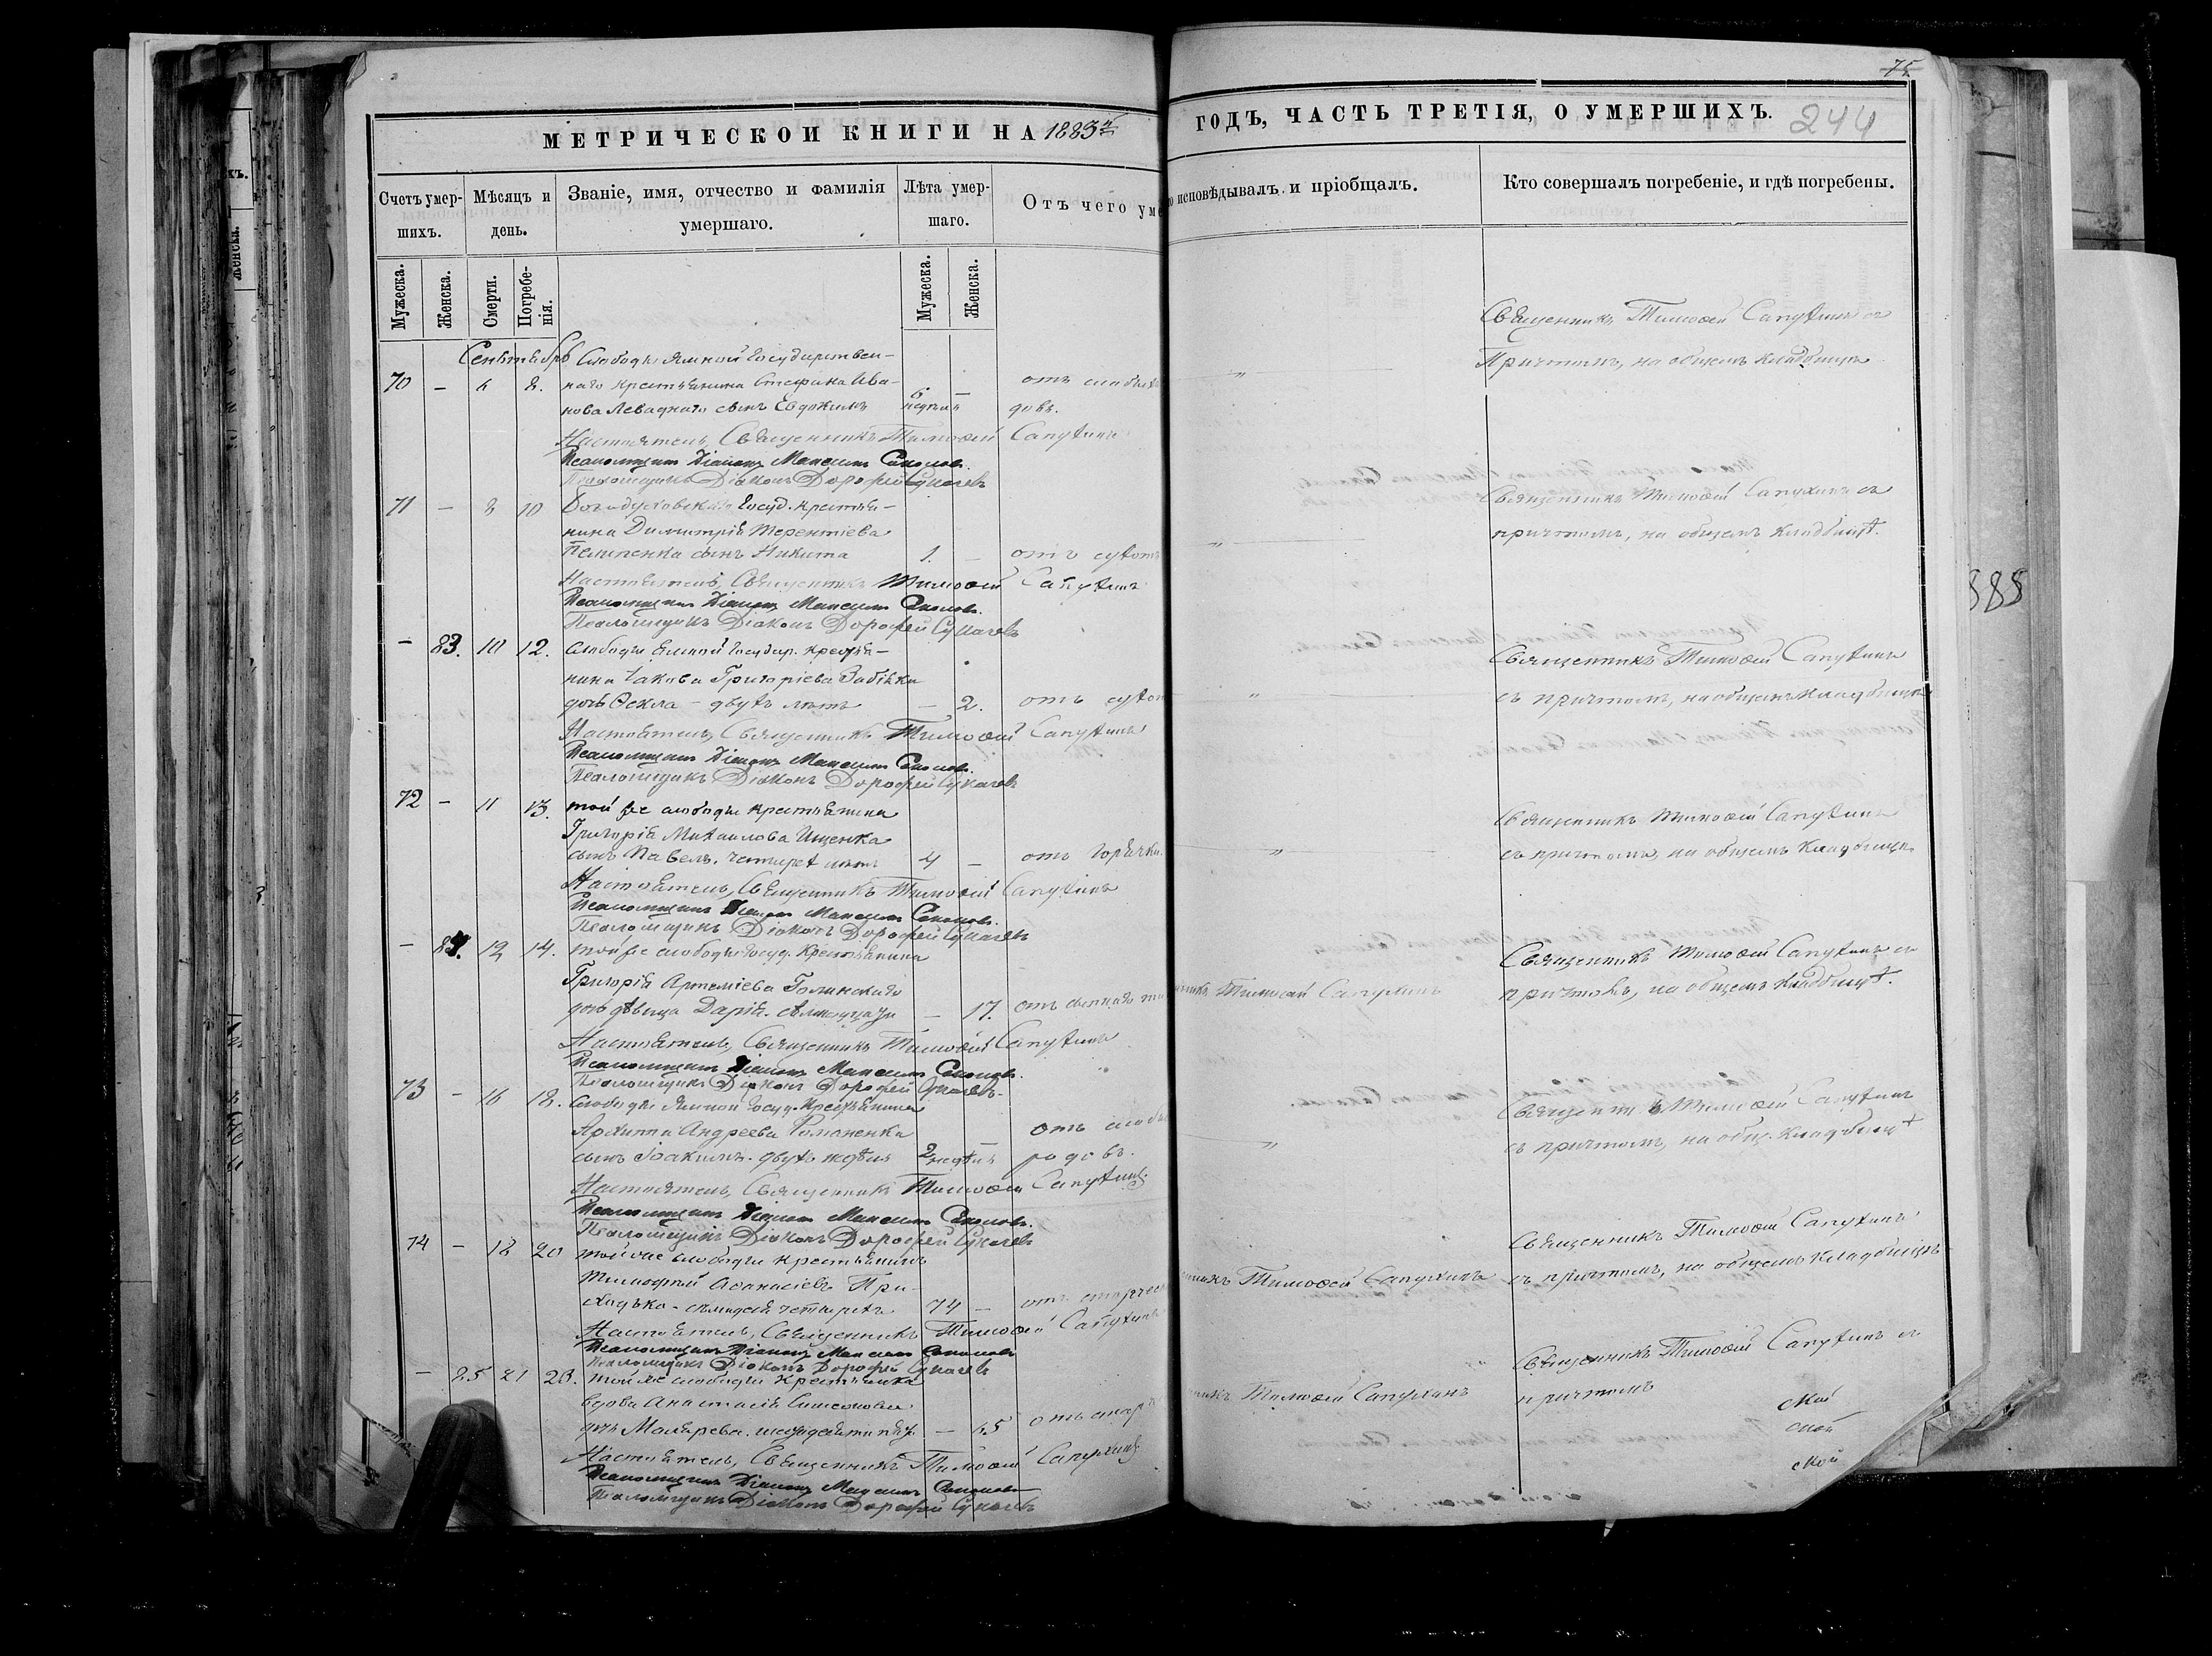 75
МЕТРИЧЕСКОЙ КНИГИ НА 1883й
ГОДЪ, ЧАСТЬ ТРЕТІЯ, О УМЕРШИХЪ. 244
Счетъ умер-
шихъ.
Мѣсяцъ и
день.
Званіе, имя, отчество и фамилія
умершаго.
Лѣта умер-
шаго.
Отъ чего уме
о исповѣдывалъ и пріобщалъ.
Кто совершалъ погребеніе, и гдѣ погребены.
Мужеска.
Женска.
Смерти.
Погребе-
нія.
Мужеска.
Женска.
Сентябрь Слободы Ямной Государствен-
70 – 8. наго крестьянина Стефана Ива- 6 – отъ
нова Левадного сынъ Евдокимъ недѣль довъ.
Священникъ Тимоѳей Сапухинъ съ
Причтомъ, на общемъ кладбищѣ
Настоятель, Священникъ Тимоѳей Сапухинъ
Псаломщикъ Діаконъ Максимъ Соколовъ.
Псаломщикъ Діаконъ Дорофей Сукачевъ
71 – 8 10 Госуд. крестья-
нина Димитрія Терентіева
сынъ Никита 1. – отъ сухот
Священникъ Тимоѳей Сапухинъ съ
причтомъ, на общемъ кладбищѣ.
Настоятель, Священникъ Тимоѳей Сапухинъ
Псаломщикъ Діаконъ Максимъ Соколовъ.
Псаломщикъ Діаконъ Дорофей Сукачевъ
– 83. 10 12. Слободы Ямной Государ. крестья-
нина Іакова Григоріева
дочь Ѳекла – двухъ лѣтъ – 2. отъ сухот
Священникъ Тимоѳей Сапухинъ
съ причтомъ, на общемъ кладбищѣ
Настоятель, Священникъ Тимоѳей Сапухинъ
Псаломщикъ Діаконъ Максимъ Соколовъ.
Псаломщикъ Діаконъ Дорофей Сукачевъ
72 – 11 13. той же слободы крестьянина
Григорія Михаилова Ищенка
сынъ Павелъ. четырехъ лѣтъ 4 – отъ горячки
Священникъ Тимоѳей Сапухинъ
съ причтомъ, на общемъ кладбищѣ
Настоятель, Священникъ Тимоѳей Сапухинъ
Псаломщикъ Діаконъ Максимъ Соколовъ.
Псаломщикъ Діаконъ Дорофей Сукачевъ
– 84. 12 14. той же слободы Госуд. крестьянина
Григорія Артеміева Голинскаго
дочь дѣвица Дарія. – 17. отъ
Тимоѳей Сапухинъ
Священникъ Тимоѳей Сапухинъ съ
причтомъ, на общемъ кладбищѣ.
Настоятель, Священникъ Тимоѳей Сапухинъ
Псаломщикъ Діаконъ Максимъ Соколовъ.
Псаломщикъ Діаконъ Дорофей Сукачевъ.
73 – 16 18. Слободы Ямной Госуд. крестьянина
Архипа Андреева Романенка отъ
сынъ Іоакимъ. двухъ недѣль 2 недѣль родовъ.
Священникъ Тимоѳей Сапухинъ
съ причтомъ, на общ. кладбищѣ
Настоятель, Священникъ Тимоѳей Сапухинъ
Псаломщикъ Діаконъ Максимъ Соколовъ.
Псаломщикъ Діаконъ Дорофей Сукачевъ
74 – 18 20 той же слободы крестьянинъ
Тимофей Аѳанасіевъ При-
ходько – 74 – отъ
Тимоѳей Сапухинъ
Священникъ Тимоѳей Сапухинъ
съ причтомъ, на общемъ кладбищѣ
Настоятель, Священникъ Тимоѳей Сапухинъ
Псаломщикъ Діаконъ Максимъ Соколовъ
Псаломщикъ Діаконъ Дорофей Сукачевъ
– 85 21 23. той же слободы крестьянка
вдова Анастасія Симеонова
– 65 отъ
Тимоѳей Сапухинъ
Священникъ Тимоѳей Сапухинъ съ
причтомъ
Настоятель, Священникъ Тимоѳей Сапухинъ
Псаломщикъ Діаконъ Максимъ Соколовъ
Псаломщикъ Діаконъ Дорофей Сукачевъ